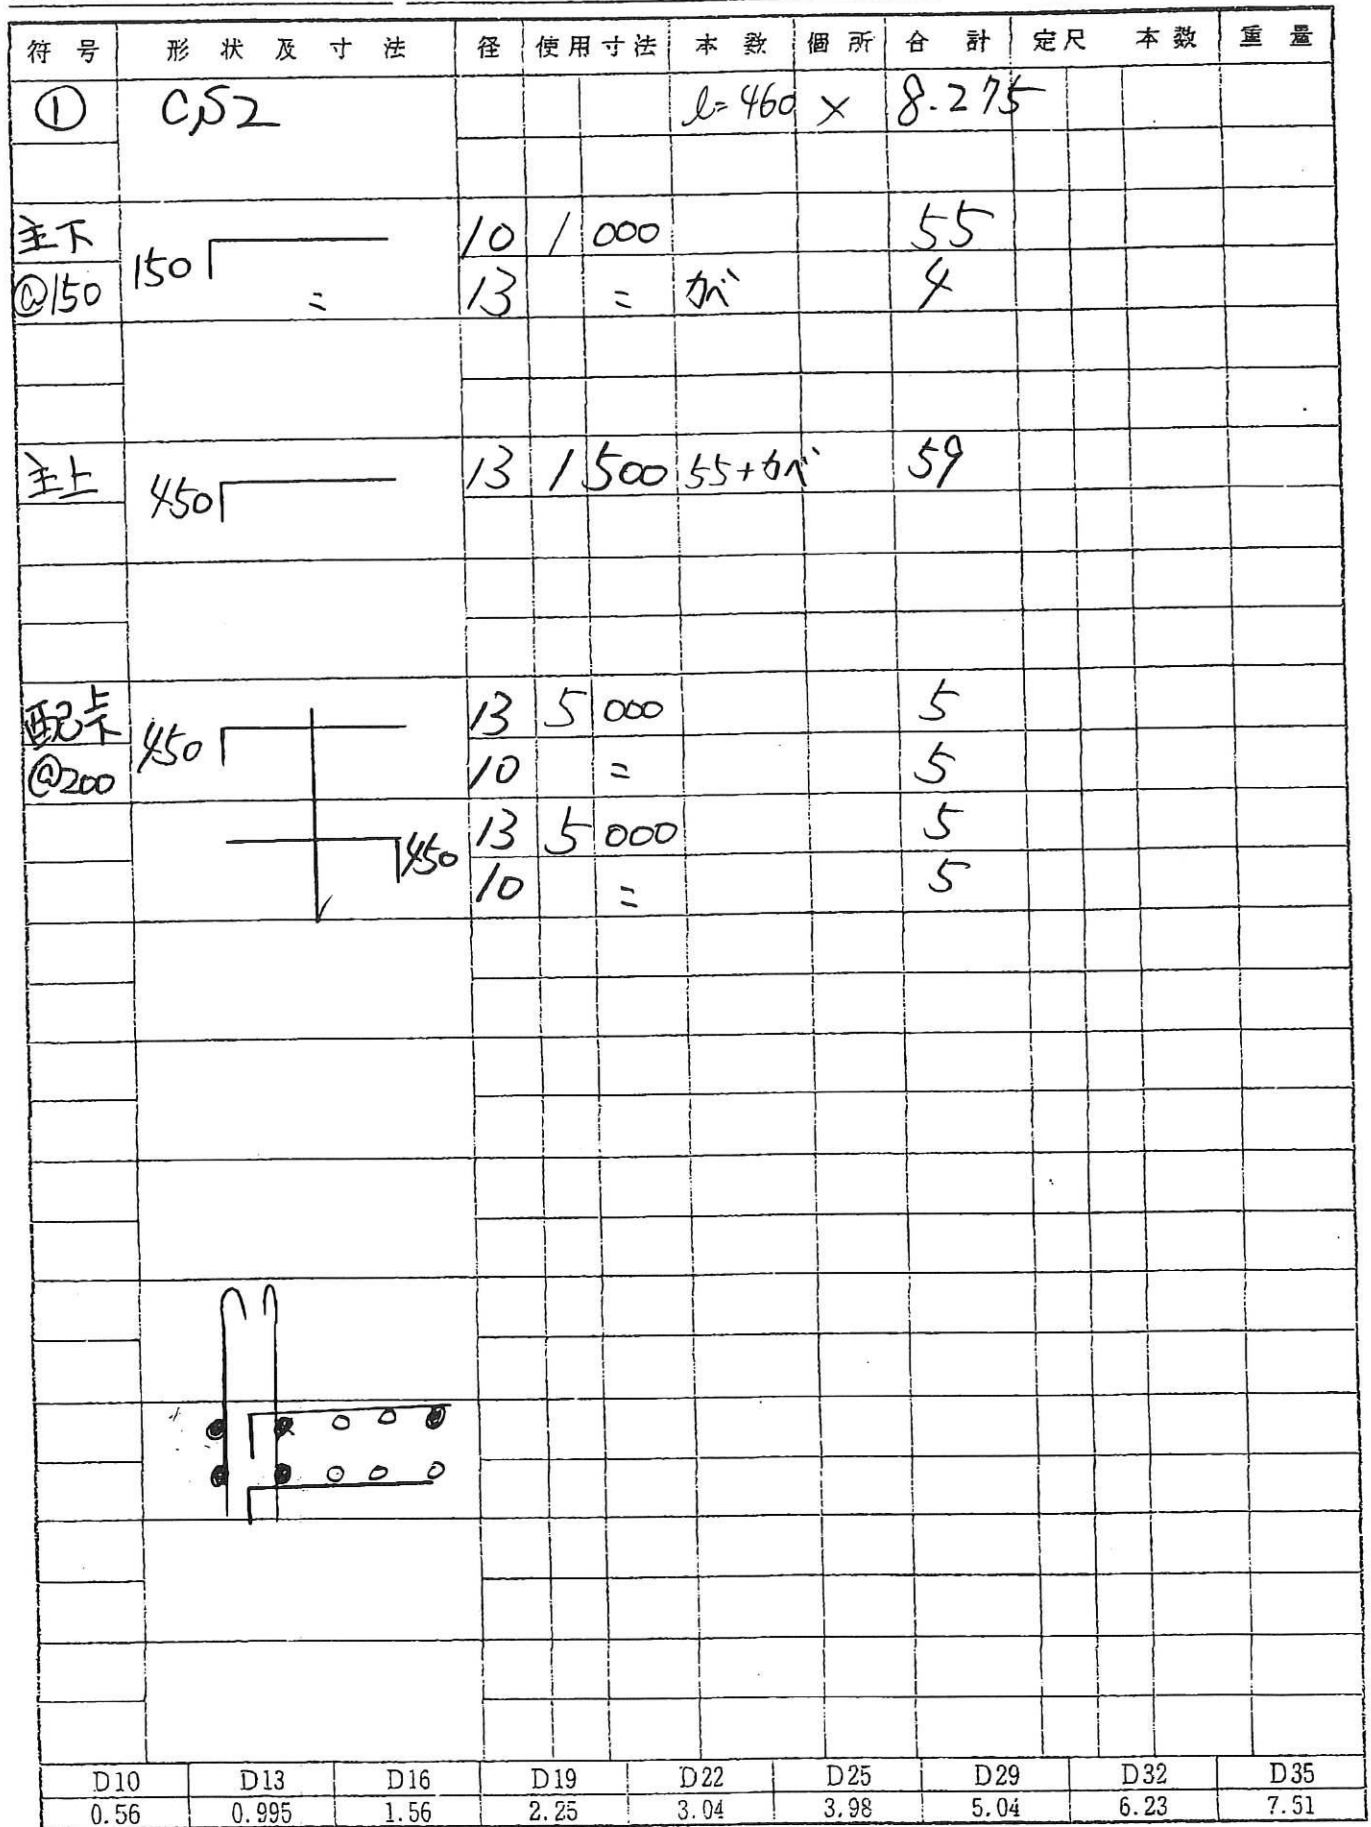 符号 形状及寸法 径 使用寸法 本数 個所 合計 定尺 本数 重量
① CS2 l=460 × 8.275
主下 150 10 1 000 55
@150 = 13 = カベ 4
主上 450 13 1 500 55+カベ 59
配上下 450 13 5 000 5
@200 10 = 5
450 13 5 000 5
10 = 5
D10 D13 D16 D19 D22 D25 D29 D32 D35
0.56 0.995 1.56 2.25 3.04 3.98 5.04 6.23 7.51